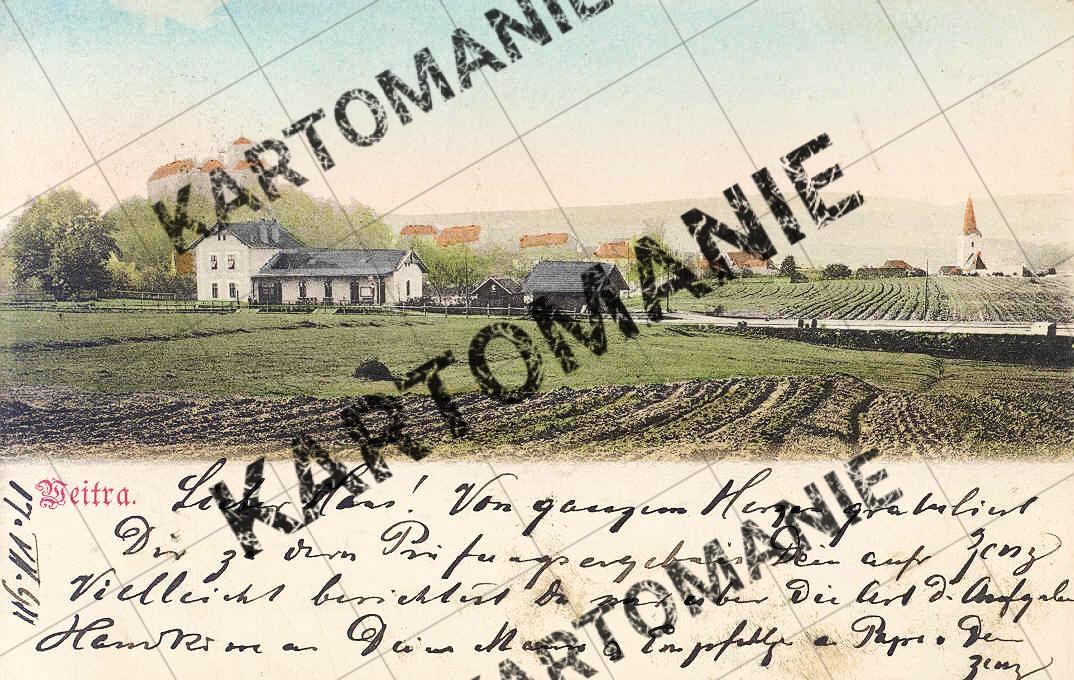 KARTOMANIE
KARTOMANIE
KARTOMANIE
KARTOMANIE
Weitra.
Lieber Hans! Von ganzem Herzen gratuliert
Dir zu dem Prüfungsergebnis Dein aufr
Vielleicht berichtest Du mir über die Art d. Aufgaben
an Deine Mama Empfehlge a Papa Dein